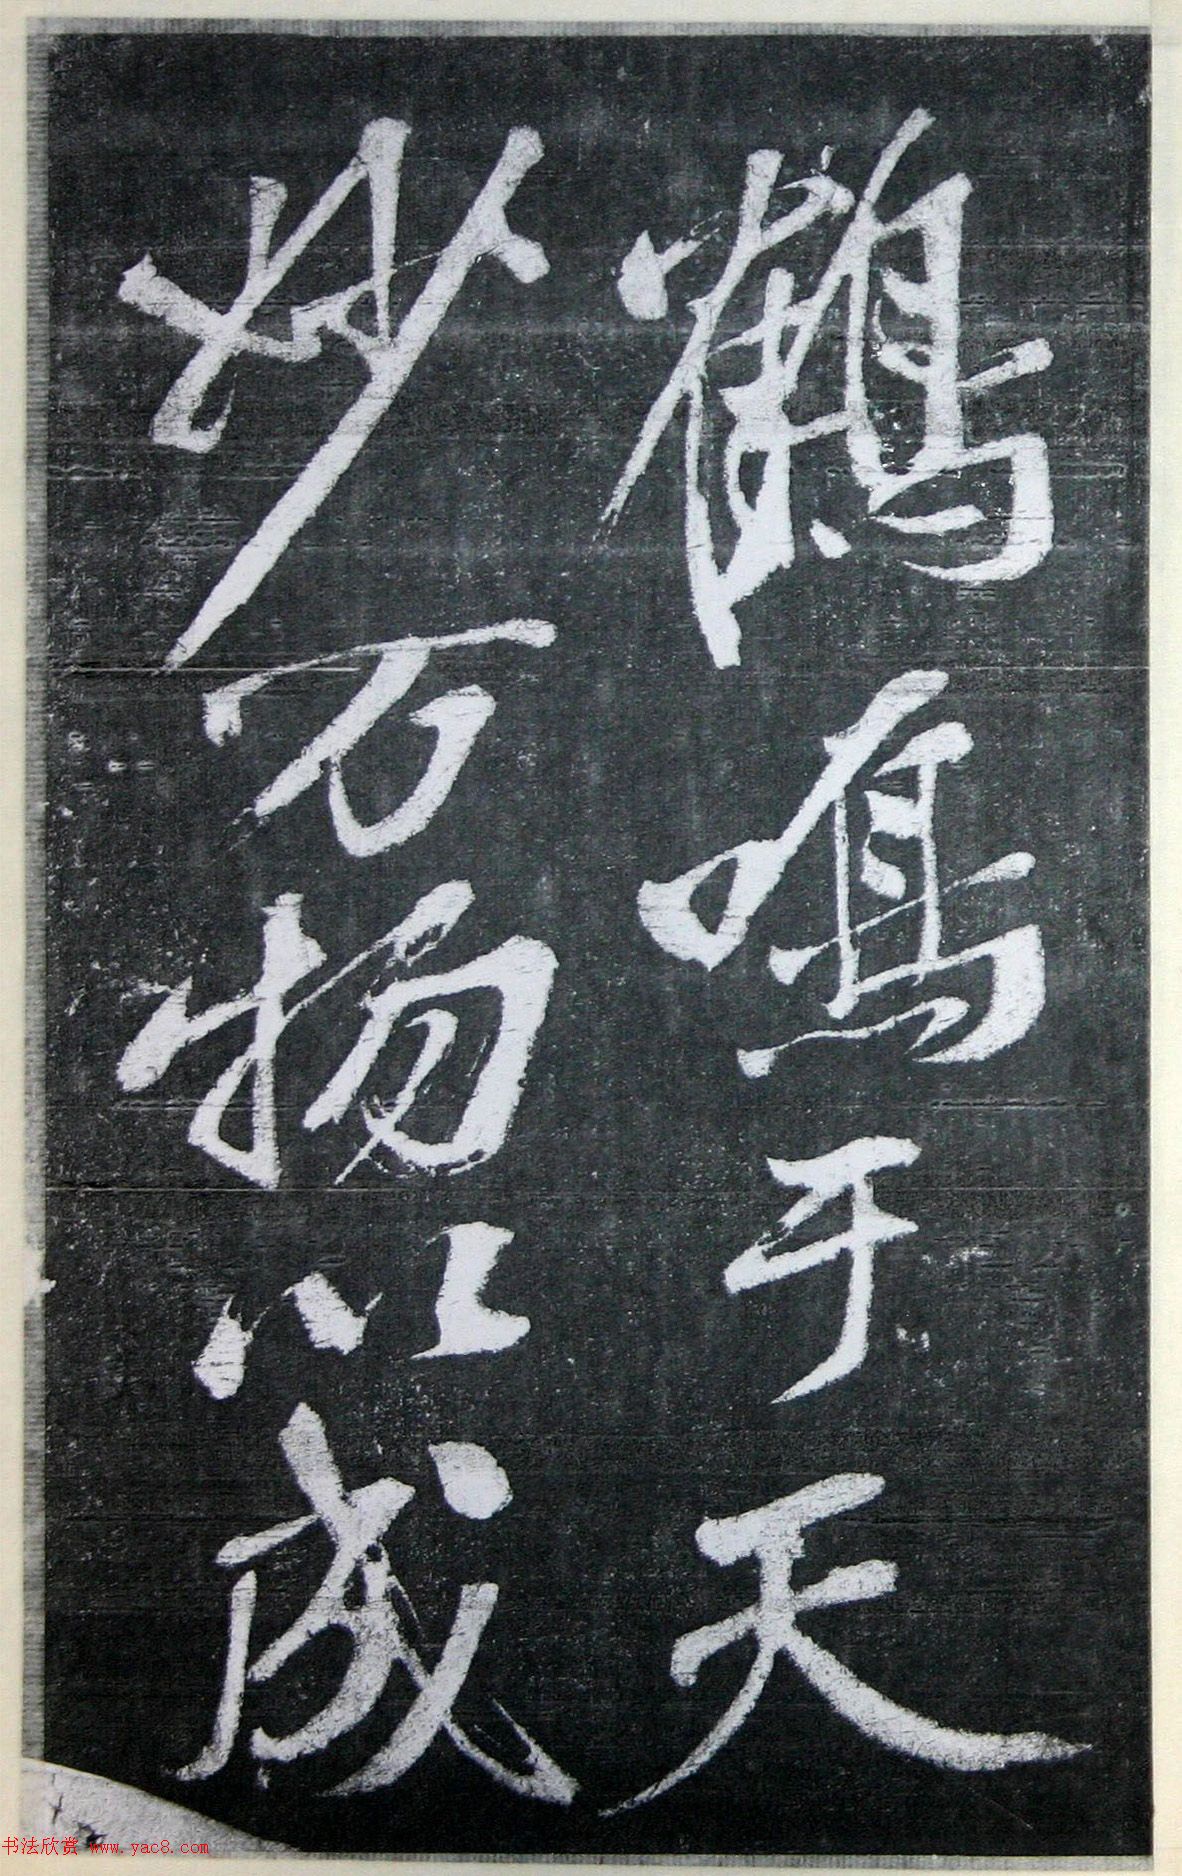 鶴鳴于天
妙万物以成
书法欣赏 www.yac8.com